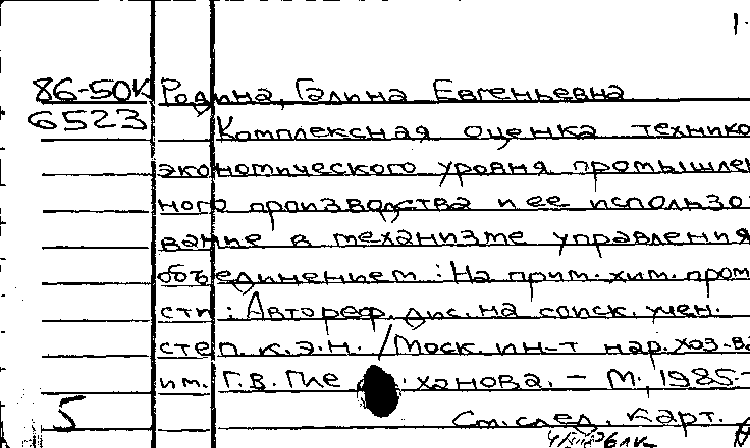 1-
86-50К Родина, Галина Евгеньевна
6523 Комплексная оценка технико
экономического уровня промышлен
ного производства и ее использо
вание в механизме управления
объединением: На прим. хим. пром
сти: Автореф. дис. на соиск. учен.
степ. к.э.н. / Моск. ин-т нар. хоз-ва
им. Г.В. Пле ханова. - М., 1985.-
5 См. след. карт.